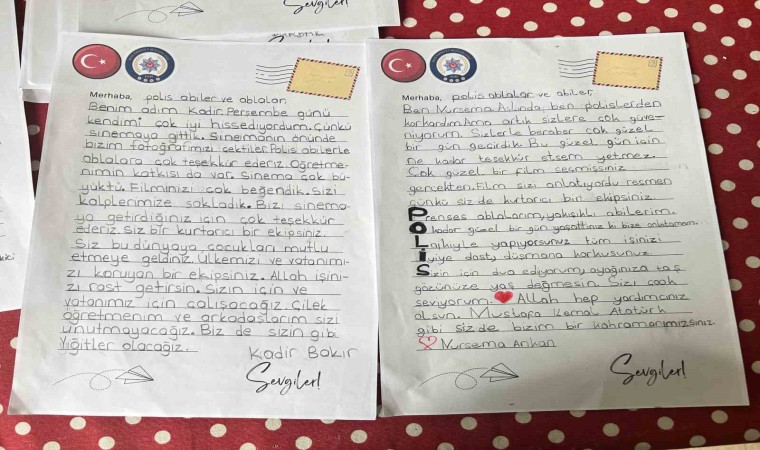 Sevgiler!
Merhaba, polis abiler ve ablalar,
Benim adım Kadir. Persembe günü
kendimi çok iyi hissediyordum. Çünkü
sinemaya gittik. Sinemanın önünde
bizim fotoğrafımızı çektiler. Polis abilerle
ablalara çok teşekkür ederiz. Öğretme-
nimin katkısı da var. Sinema çok bü-
yüktü. Filminizi çok beğendik. Sizi
kalplerimize sakladık. Bizi sinema-
ya getirdiğiniz için çok teşekkür
ederiz. Siz bir kurtarıcı bir ekipsiniz.
Siz bu dünyaya çocukları mutlu
etmeye geldiniz. Ülkemizi ve vatanımı-
zı koruyan bir ekipsiniz. Allah işini-
zi rast getirsin. Sizin için ve
vatanımız için çalışacağız. Çilek
öğretmenim ve arkadaşlarım sizi
unutmayacağız. Biz de sizin gibi
yiğitler olacağız.
Kadir Bakır
Sevgiler!
Merhaba, polis ablalar ve abiler,
Ben Nursema. Aslında ben polislerden
korkardım. Ama artık sizlere çok güve-
niyorum. Sizlerle beraber çok güzel
bir gün geçirdik. Bu güzel gün için
ne kadar teşekkür etsem yetmez.
Çok güzel bir film seçmişsiniz
gerçekten. Film sizi anlatıyordu resmen
çünkü siz de kurtarıcı bir ekipsiniz.
Prenses ablalarım, yakışıklı abilerim.
O kadar güzel bir gün yaşattınız ki bize anlatamam...
Layıkıyla yapıyorsunuz tüm işinizi
İyiye dost, düşmana korkusunuz
Sizin için dua ediyorum, ayağınıza taş
gözünüze yaş değmesin. Sizi çook
seviyorum. Allah hep yardımcınız
olsun. Mustafa Kemal Atatürk
gibi siz de bizim bir kahramanımızsınız.
Nursema Arıkan
Sevgiler!